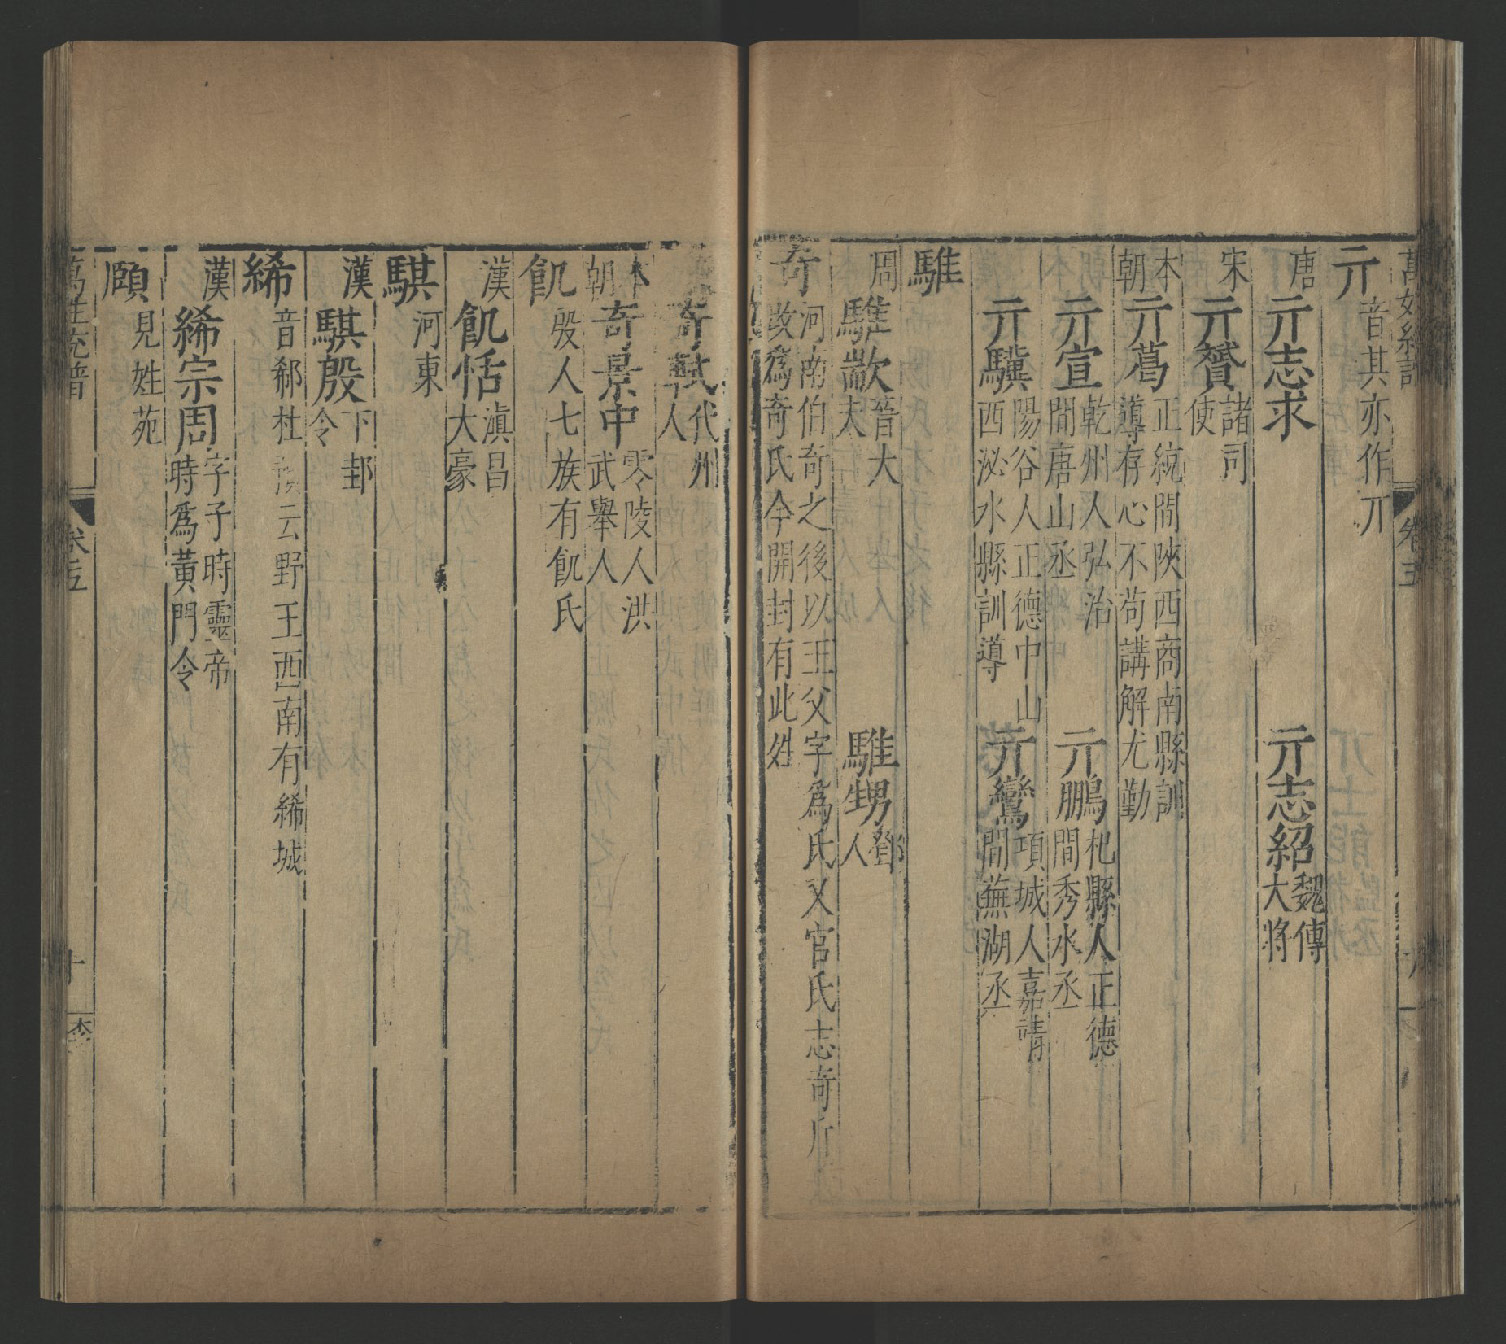 亓音其亦作丌
唐亓志求　亓志紹魏傳大將
宋亓贇諸司使
本朝亓葛正統間陜西商南縣訓導存心不苟講解尤勤
亓宣乾州人弘治間唐山丞　亓鵬杞縣人正德間秀水丞
亓驥陽谷人正德中山西泌水縣訓導　亓鸞項城人嘉靖間蕪湖丞
騅
周騅歂晉大夫　騅甥鄧人
奇河南伯奇之後以王父字爲氏又官氏志奇斤改爲奇氏今開封有此姓
奇軾代州人
本朝奇景中零陵人洪武舉人
飢殷人七族有飢氏
漢飢恬滇昌大豪
騏河東
漢騏殷下邽令
絺音郗杜云野王西南有絺城
漢絺宗周字子時靈帝時爲黃門令
頤見姓苑
萬姓統譜　卷五　十